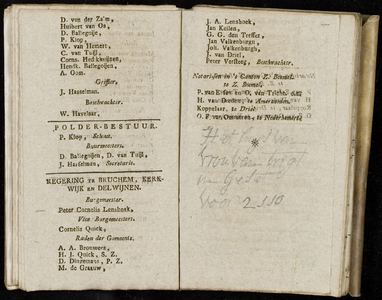 D. van der Zalm,
Huibert van Os,
D. Ballegoijen,
P. Klop,
W. van Hemert,
C. van Tuijl,
Corns. Hedikhuijzen,
Hendk. Ballegoijen,
A. Oom.
Griffier,
J. Hasselman.
Boschwachter.
W. Havelaar.
POLDER-BESTUUR.
P. Klop, Schout.
Buurmeesters.
D. Ballegoijen, D. van Tuijl,
J. Hasselman, Secretaris.
REGERING te BRUCHEM, KERK-
WIJK en DELWIJNEN.
Burgemeester.
Peter Cornelis Lenshoek,
Vice Burgemeesters.
Cornelis Quick,
Raden der Gemeente.
A. A. Brouwers,
H. J. Quick, S. Z.
D. P. Z.
M. de Graauw,
J. A. Lenshoek,
Jan Keilen,
G. G. den Treffet
Jan Valkenburgh,
Joh. Valkenburgh,
J. van Driel,
Peter Versteeg, Boschwachter.
Notarissen in 't Canton Z. Bommel.
te Z. Bommel.
P. van Elsen en O. van Tricht,
H. van te Ameronzoden,
Koppelaar, te Driel
O. P. van Ommeren, te Nederhemert.
Het
van
van
voor 2-10